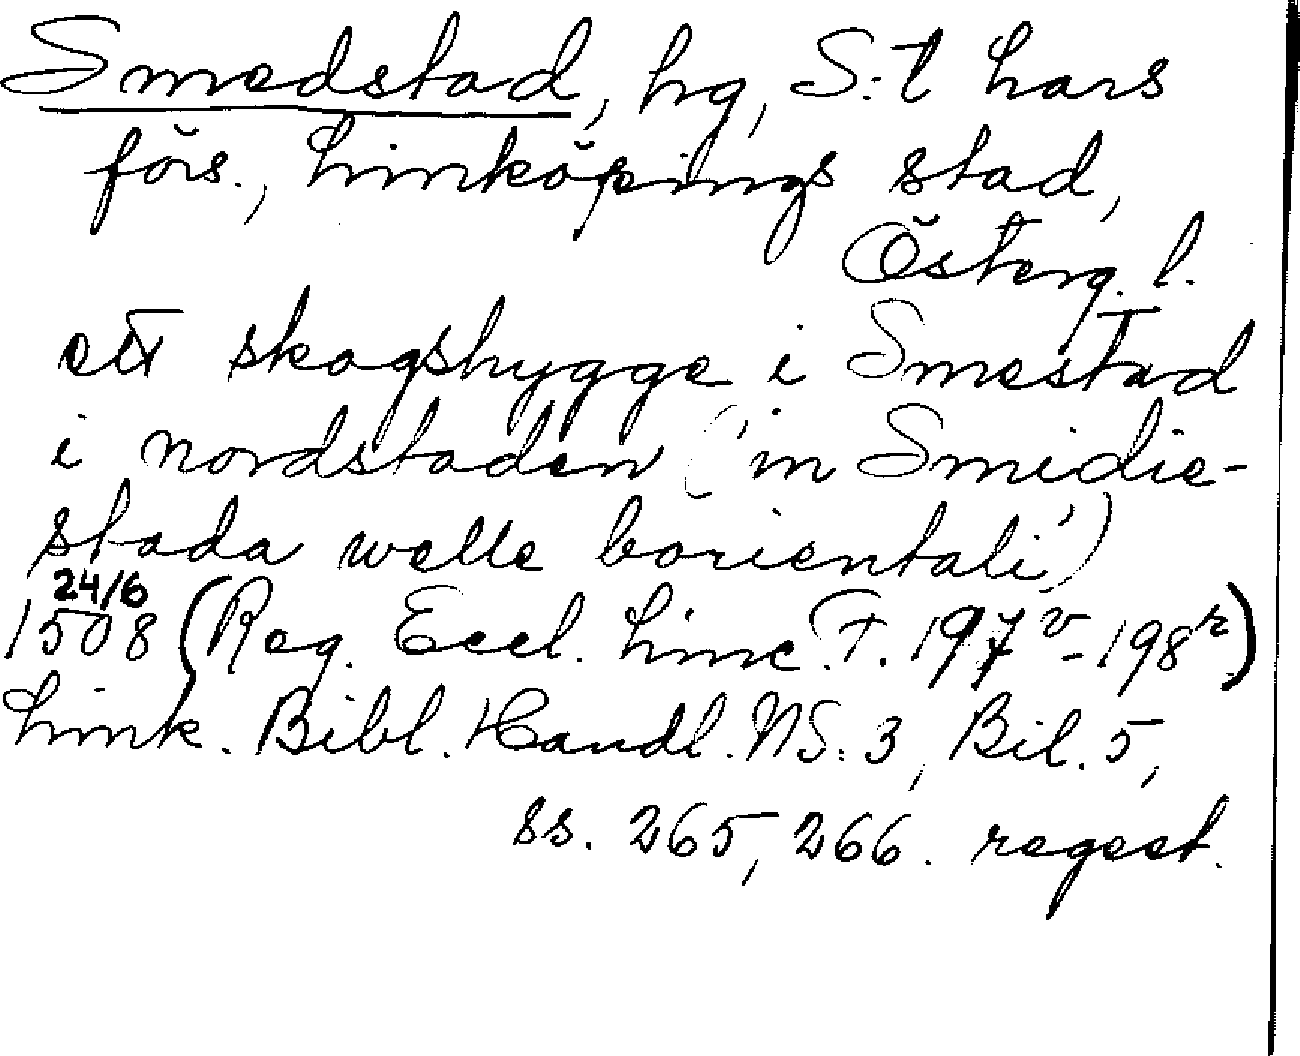 Smedstad, hg, S:t Lars
förs., Linköpings stad,
Österg. l.
ett skogshygge i Smestad
i nordstaden ('in Smidie-
stada welle borientali')
24/6
1508 (Reg. Eccl. Linc. F. 197v - 198r)
Link. Bibl. Handl. NS. 3, Bil. 5,
ss. 265, 266. regest.